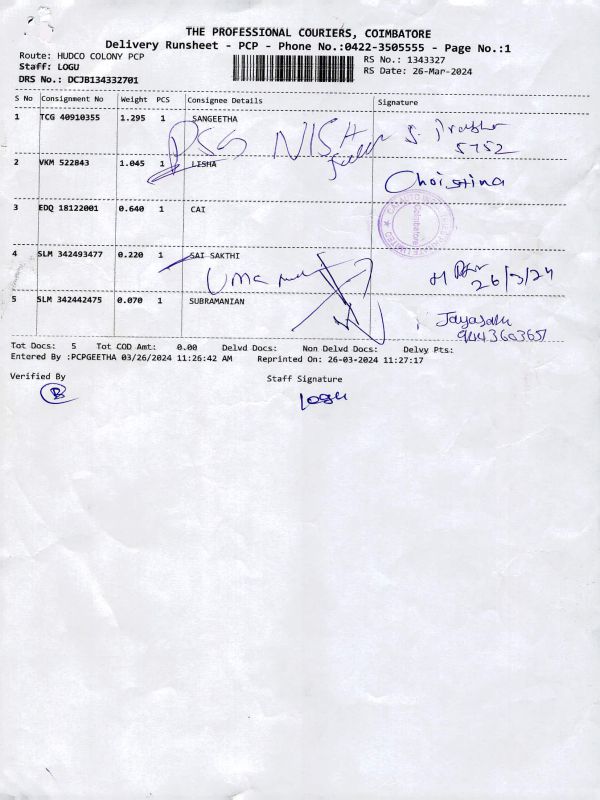 THE PROFESSIONAL COURIERS, COIMBATORE
Delivery Runsheet - PCP - Phone No.:0422-3505555 - Page No.:1
Route: HUDCO COLONY PCP
RS No.: 1343327
Staff: LOGU
RS Date: 26-Mar-2024
DRS No.: DCJB134332701
S No Consignment No Weight PCS Consignee Details Signature
1 TCG 40910355 1.295 1 SANGEETHA
PSG NISH
5752
2 VKM 522843 1.045 1 LISHA
Christina
3 EDQ 18122001 0.640 1 CAI
4 SLM 342493477 0.220 1 SAI SAKTHI
Uma
26/3/24
5 SLM 342442475 0.070 1 SUBRAMANIAN
Tot Docs: 5 Tot COD Amt: 0.00 Delvd Docs: Non Delvd Docs: Delvy Pts:
Entered By :PCPGEETHA 03/26/2024 11:26:42 AM Reprinted On: 26-03-2024 11:27:17
Verified By
Staff Signature
B
logu